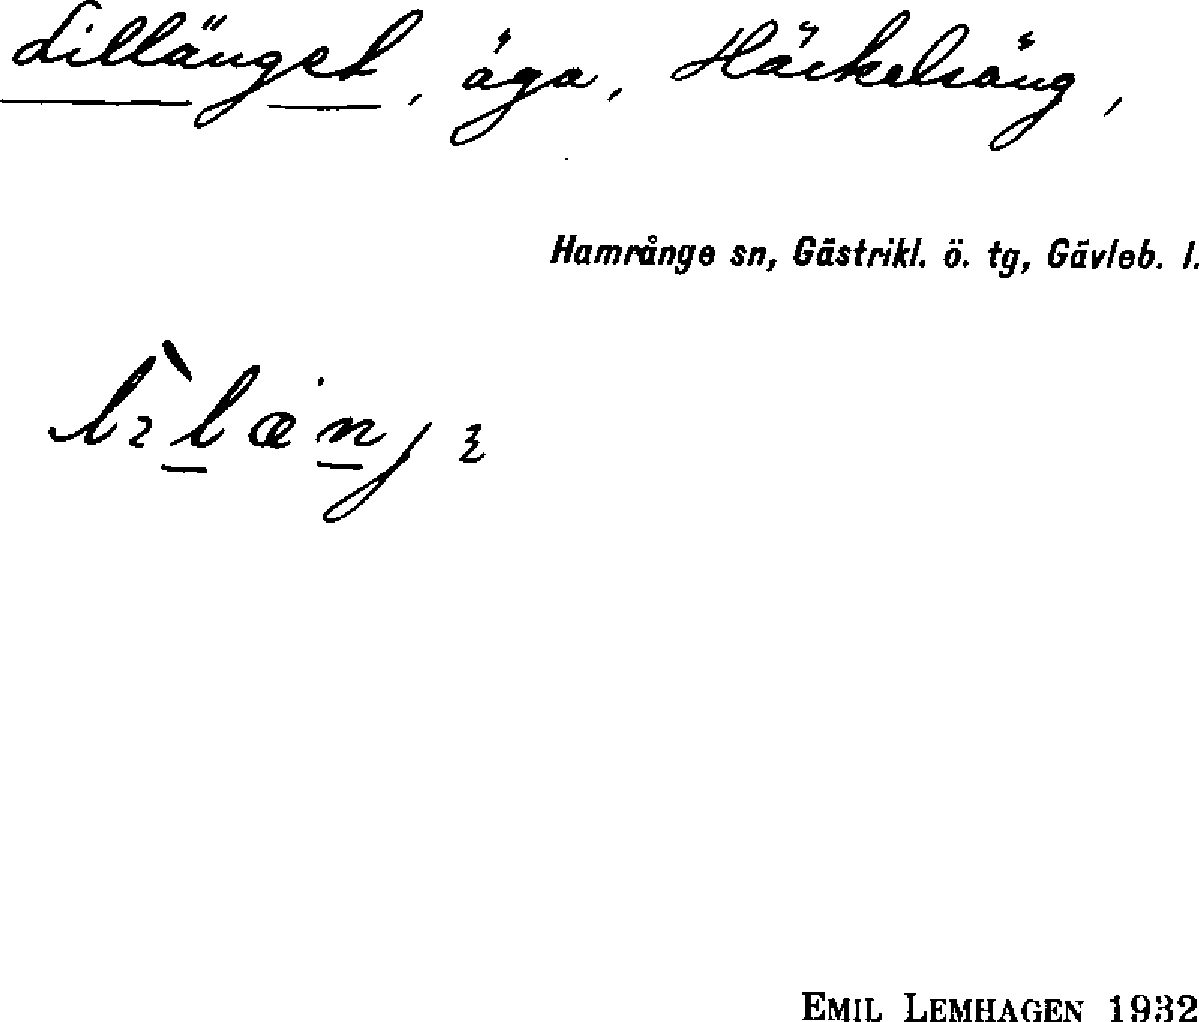 Lillänget, äga, Häckelsäng,
Hamrånge sn, Gästrikl. ö. tg, Gävleb. l.
EMIL LEMHAGEN 1932